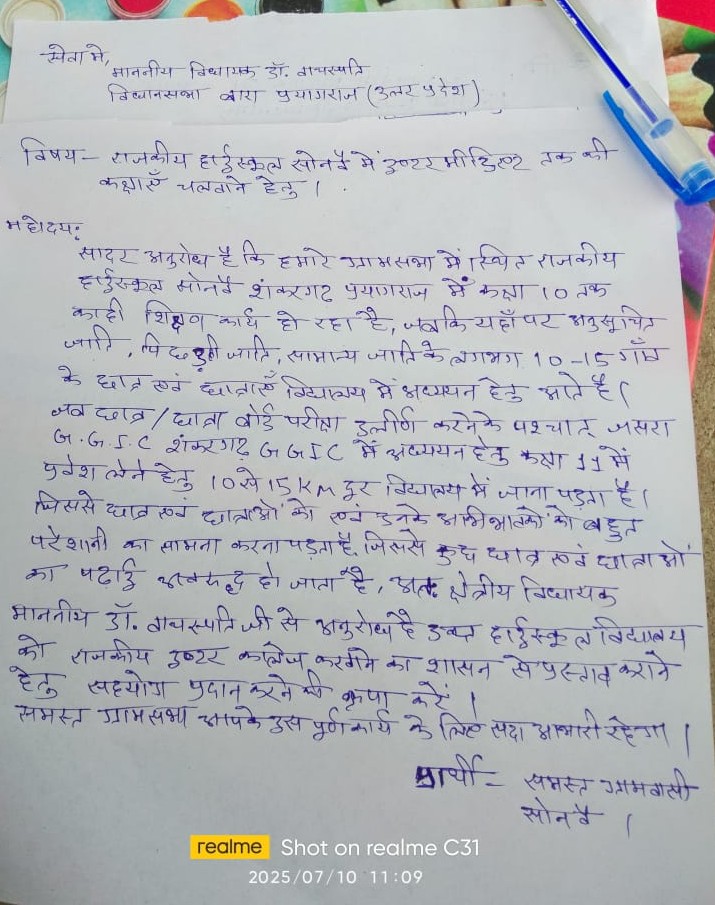 सेवा में,
माननीय विधायक डॉ. वाचस्पति
विधानसभा बारा प्रयागराज (उत्तर प्रदेश)
विषय - राजकीय हाईस्कूल सोनवै में इण्टरमीडिएट तक की
कक्षाएँ चलवाने हेतु।
महोदय:
सादर अनुरोध है कि हमारे ग्रामसभा में स्थित राजकीय
हाईस्कूल सोनवै शंकरगढ़ प्रयागराज में कक्षा 10 तक
का ही शिक्षण कार्य हो रहा है, जबकि यहाँ पर अनुसूचित
जाति, पिछड़ी जाति, सामान्य जाति के लगभग 10-15 गाँव
के छात्र एवं छात्राएँ विद्यालय में अध्ययन हेतु आते है।
जब छात्र/छात्रा बोर्ड परीक्षा उत्तीर्ण करने के पश्चात् जसरा
G.G.I.C शंकरगढ़ GGIC में अध्ययन हेतु कक्षा 11 में
प्रवेश लेने हेतु 10 से 15 KM दूर विद्यालय में जाना पड़ता है।
जिससे छात्र एवं छात्राओं को एवं उनके अभिभावकों को बहुत
परेशानी का सामना करना पड़ता है, जिससे कुछ छात्र एवं छात्राओं
का पढाई अवरुद्ध हो जाता है, अतः क्षेत्रीय विधायक
माननीय डॉ. वाचस्पति जी से अनुरोध है उक्त हाईस्कूल विद्यालय
को राजकीय इण्टर कालेज करने का शासन से प्रस्ताव कराने
हेतु सहयोग प्रदान करने की कृपा करें।
समस्त ग्रामसभा आपके इस पूर्ण कार्य के लिए सदा आभारी रहेगा।
प्रार्थी - समस्त ग्रामवासी
सोनवै।
realme Shot on realme C31
2025/07/10 11:09